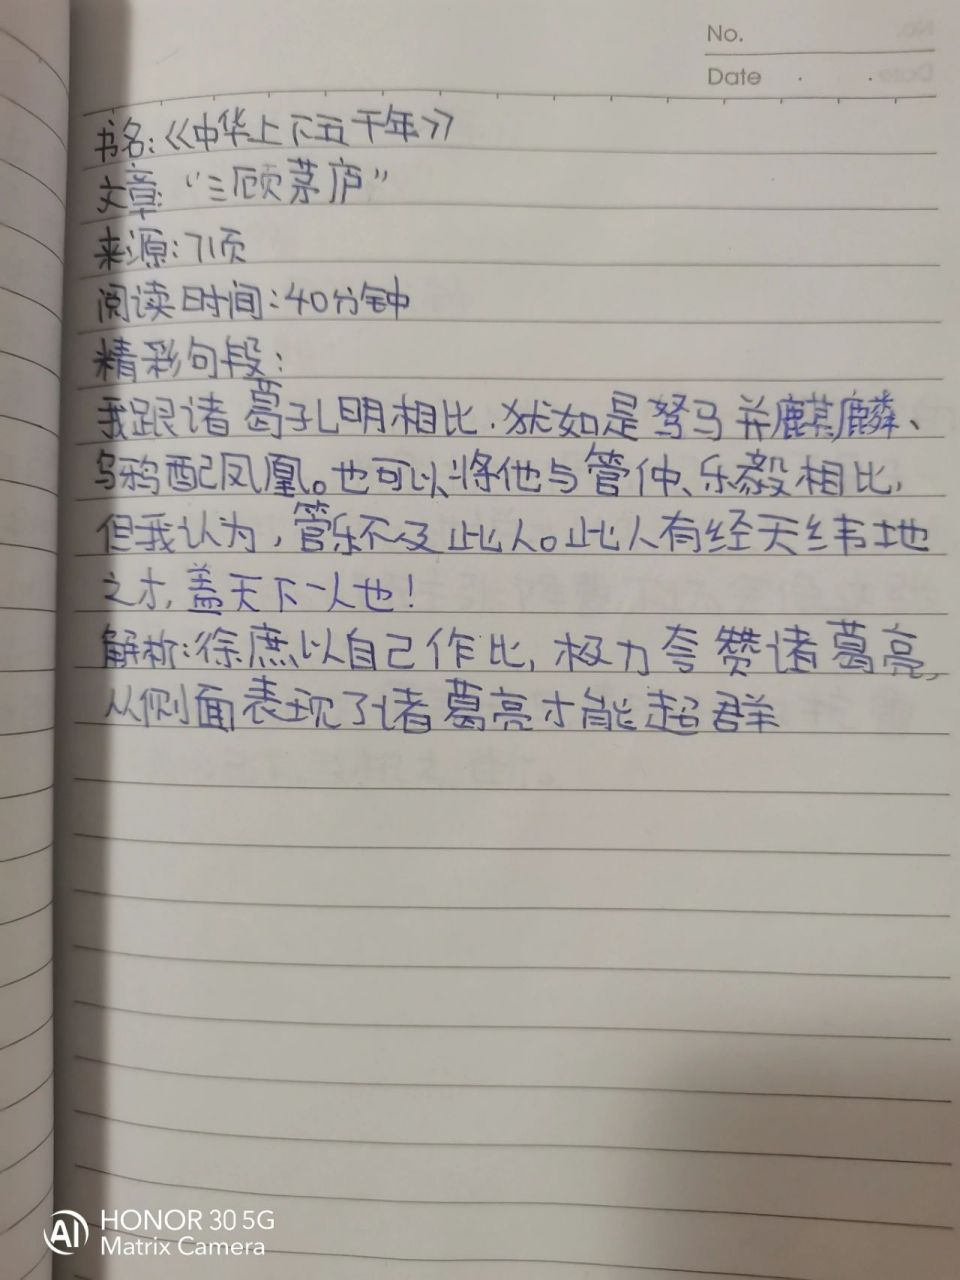 No.
Date
书名:《中华上下五千年》
文章:“三顾茅庐”
来源:71页
阅读时间:40分钟
精彩句段:
我跟诸葛孔明相比.犹如是驽马并麒麟、
乌鸦配凤凰。也可以将他与管仲、乐毅相比,
但我认为,管乐不及此人。此人有经天纬地
之才,盖天下一人也!
解析:徐庶以自己作比,极力夸赞诸葛亮,
从侧面表现了诸葛亮才能超群
HONOR 30 5G
Matrix Camera